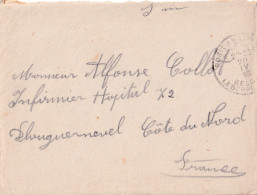 S m
Monsieur Alfonse Collo
Infirmier Hopital 72
Plouguernevel Côte du Nord
France